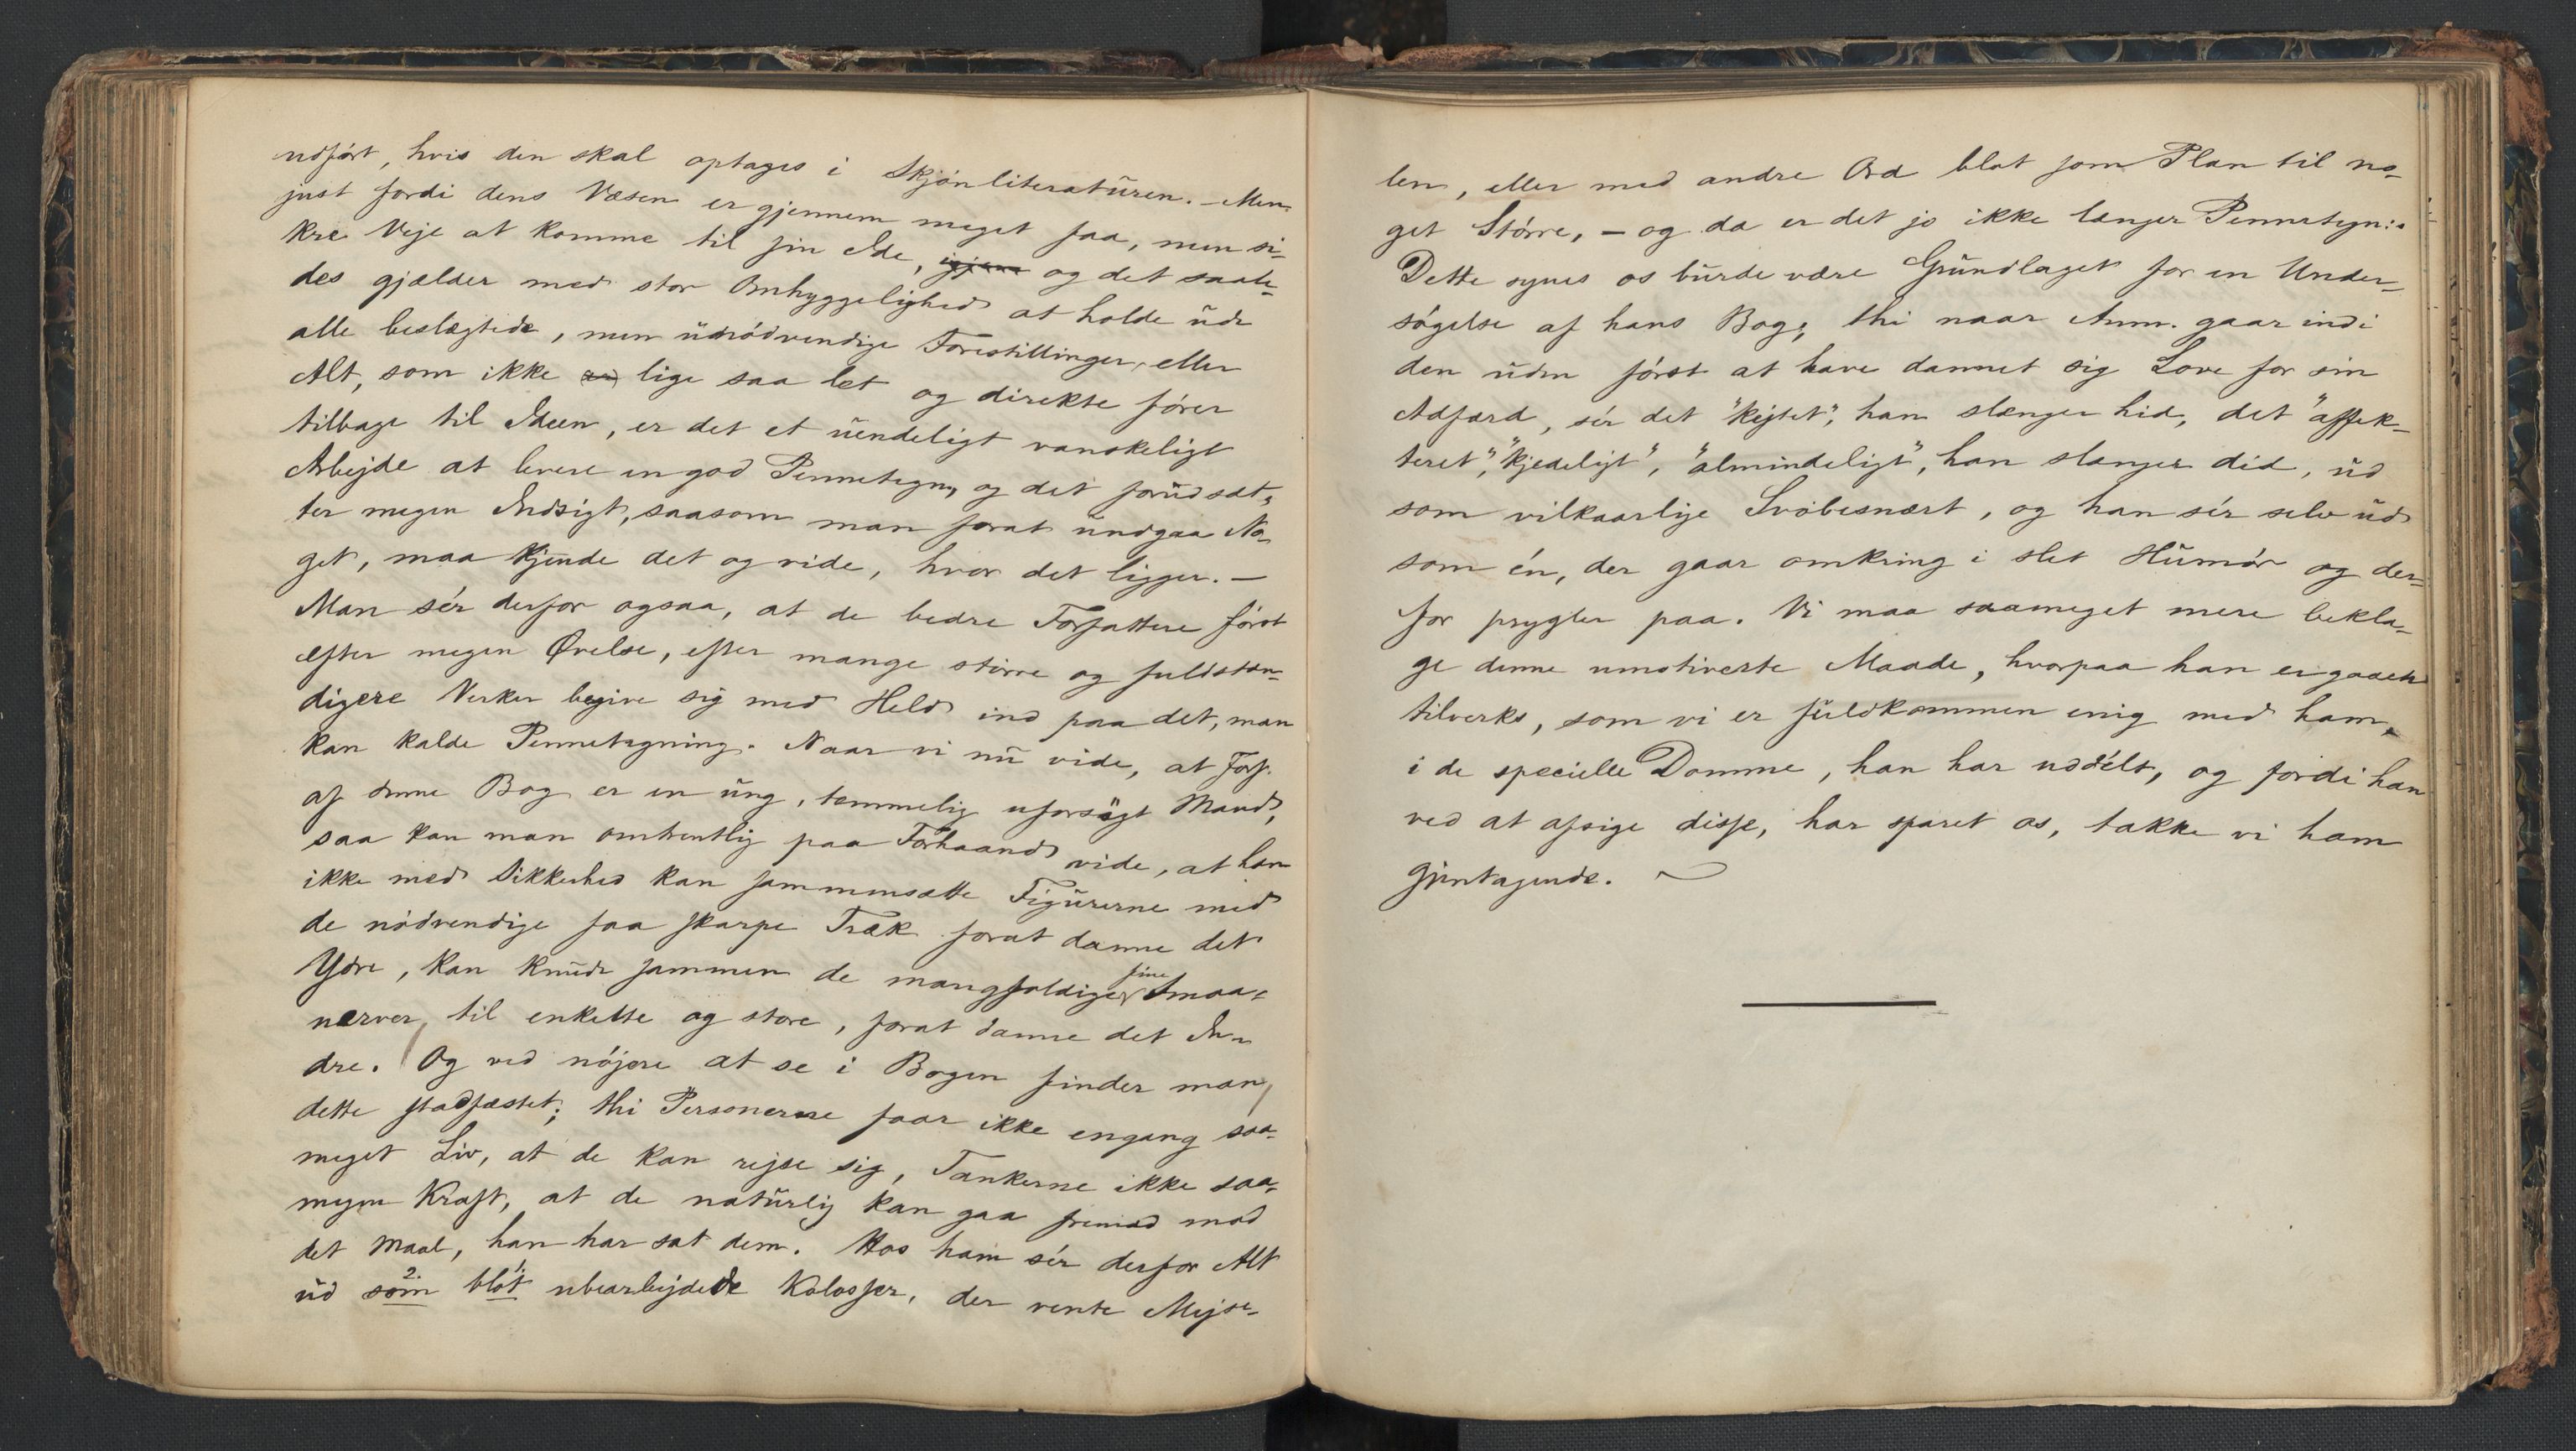 udført, hvis den skal optages i Skjønliteraturen. – Men
just fordi dens Væsen er gjennem meget faa, men si-
kre Veje at komme til sin Ide, og det saale-
des gjælder med stor Omhyggelighed at holde ude
alle beslægtede, men unødvendige Forestillinger, eller
Alt, som ikke er lige saa let og direkte fører
tilbage til Ideen, er det et uendeligt vanskeligt
Arbejde at levere en god Pennetegn, og det forudsæt-
ter megen Indsigt, saasom man forat undgaa No-
get, maa kjende det og vide, hvor det ligger. –
Man sér derfor ogsaa, at de bedre Forfattere først
efter megen Øvelse, efter mange større og fuldstæn-
digere Verker begive sig med Held ind paa det, man
kan kalde Pennetegning. Naar vi nu vide, at Forf.
af denne Bog er en ung, temmelig uforsøgt Mand,
saa kan man omtrentlig paa Forhaand vide, at han
ikke med Sikkerhed kan sammensætte Figurerne med
de nødvendige faa skarpe Træk forat danne det
Ydre, kan knude sammen de mangfoldige fine Smaa-
nerver til enkelte og store, forat danne det In-
dre. Og ved nøjere at se i Bogen finder man
dette stadfæstet; thi Personerne faar ikke engang saa-
meget Liv, at de kan rejse sig, Tankerne ikke saa-
megen Kraft, at de naturlig kan gaa fremad mod
det Maal, han har sat dem. Hos ham sér derfor Alt
ud som 2. blot 1. ubearbejdede Kolosser, der vente Mejse-
len, eller med andre Ord blot som Plan til no-
get Større, – og da er det jo ikke længer Pennetegn:.
Dette synes os burde være Grundlaget for en Under-
søgelse af hans Bog; thi naar Anm. gaar ind i
den uden først at have dannet sig Love for sin
Adfærd, sér det "kejtet", han slænger hid, det "affek-
teret", "kjedeligt", "almindeligt", han slænger did, ud
som vilkaarlige Svøbesnært, og han sér selv ud
som én, der gaar omkring i slet Humør og der-
for prygler paa. Vi maa saameget mere bekla-
ge denne umotiverte Maade, hvorpaa han er gaaet
tilverks, som vi er fuldkommen enig med ham
i de specielle Domme, han har uddélt, og fordi han
ved at afsige disse, har sparet os, takke vi ham
gjentagende.